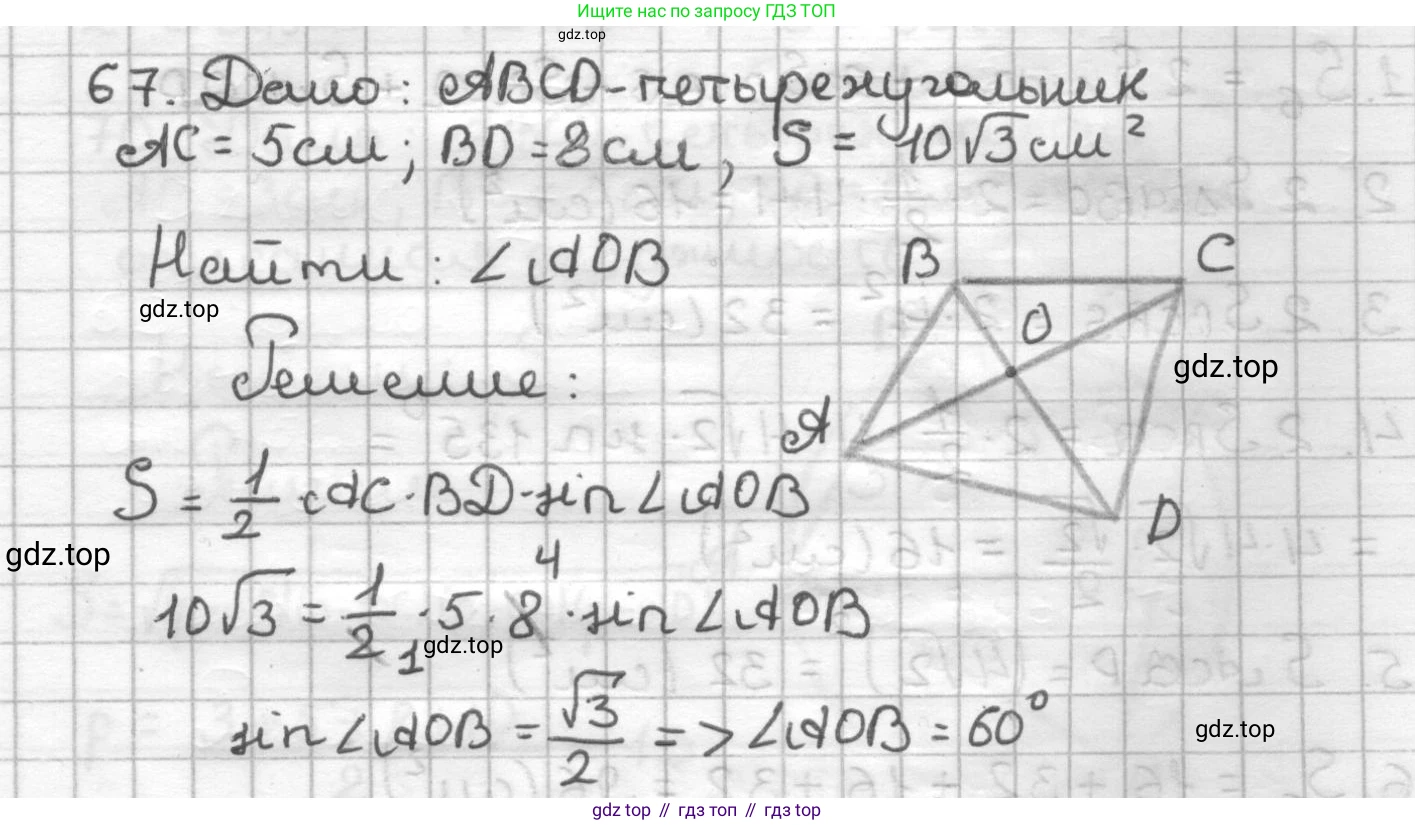 Ищите нас по запросу ГДЗ ТОП
gdz.top
67. Дано: ABCD-четырехугольник
AC = 5см; BD = 8см, S = 10√3 см²
Найти: ∠AOB
gdz.top
Решение:
B
C
O
A
D
gdz.top
S = 1/2 AC·BD·sin∠AOB
gdz.top
4
10√3 = 1/2 · 5 · 8 · sin∠AOB
1
gdz.top
sin∠AOB = √3/2 => ∠AOB = 60°
gdz.top
gdz.top // гдз топ // gdz.top